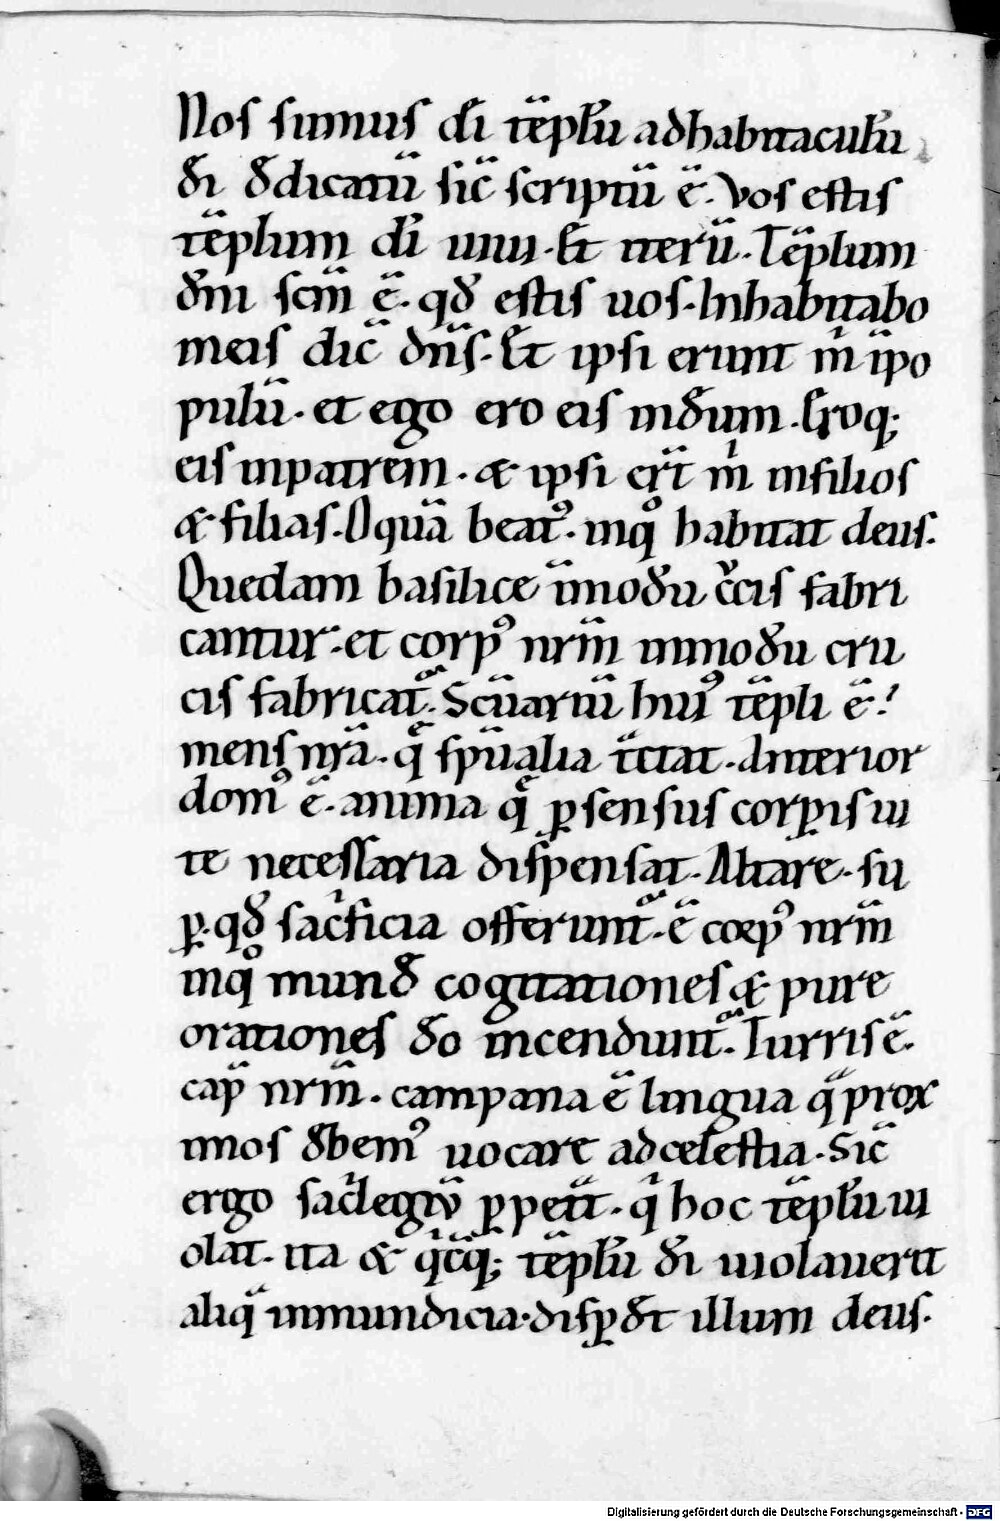 Nos sumus di tēplu adhabitaculu
di dedicatū sic̄ scriptū ē. Vos estis
tēplum di uiui. Et iterū. Tēplum
dni scm̄ ē. qd estis uos. Inhabitabo
ineis dic̄ dn̄s. Et ipsi erunt m̄ īpo
pulū. et ego ero eis indeum. Eroq;
eis inpatrem. & ipsi er̄t m infilios
& filias. O quā beat᷒. inq̊ habitat deus.
Quedam basilice īmodū cͨcis fabri
cantur. et corp᷒ nrm̄ inmodū cru
cis fabricat᷑. Scūariū hui᷒ tēpli ē?
mens nrā. q̄ spūalia tc̄tat. Interior
dom᷒ ē. anima q̄ ꝑ sensus corꝑis ui
te necessaria dispensat. Altare. su
ꝑ. qd sac̍ficia offerunt᷑. ē corp᷒ nrm̄
inq̊ munde cogitationes & pure
orationes deo incendunt᷑. Turris ē.
cap̄ nrm̄. campana ē lingua q̄ prox
imos debem᷒ uocare adcelestia. Sic̄
ergo sac̍legiū ꝑpetāt. q̍ hoc tēplu ui
olat. ita & q̍cūq; tēplu di uiolauerit
aliq̄ inmundicia. disꝑdet illum deus.
Digitalisierung gefördert durch die Deutsche Forschungsgemeinschaft - DFG